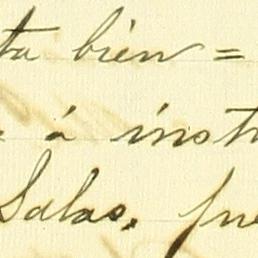 ta bien =
á inst
Salas, fue